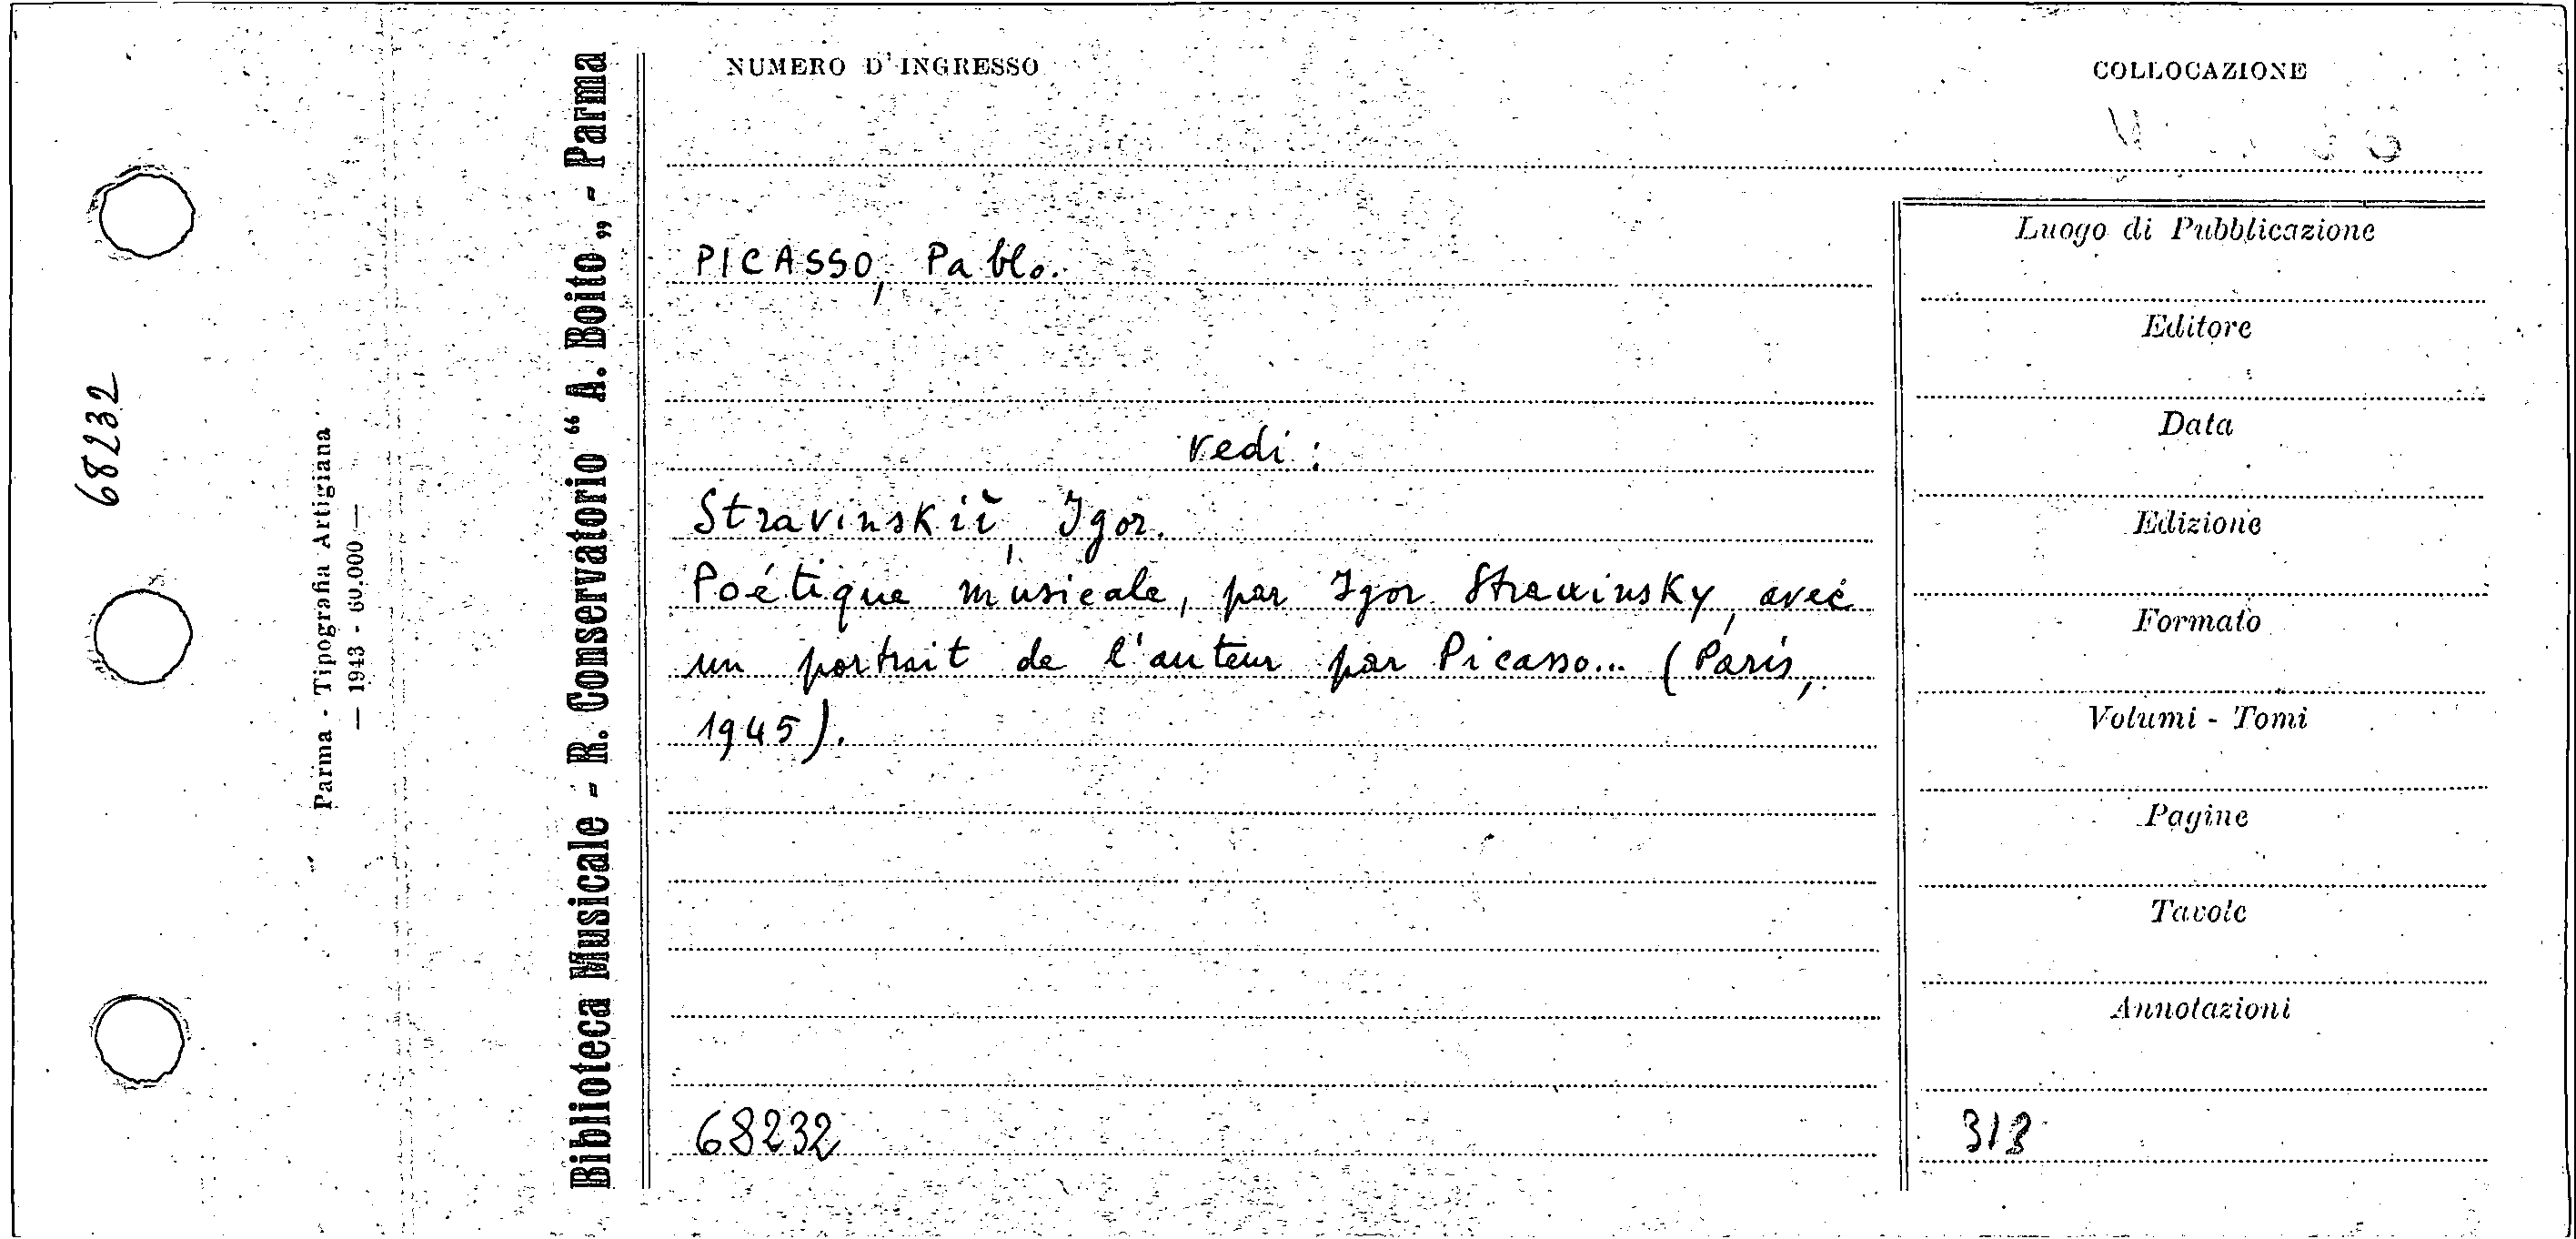 68232
Parma - Tipografia Artigiana
— 1943 - 60.000 —
Biblioteca Musicale - R. Conservatorio “ A. Boito „ - Parma
NUMERO D'INGRESSO
COLLOCAZIONE
PICASSO, Pablo.
vedi :
Stravinskiĭ, Igor.
Poétique musicale, par Igor Strawinsky, avec
un portrait de l'auteur par Picasso... (Paris,
1945).
68232
Luogo di Pubblicazione
Editore
Data
Edizione
Formato
Volumi - Tomi
Pagine
Tavole
Annotazioni
318